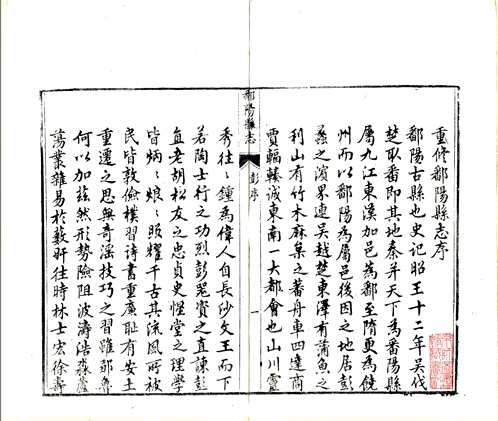 重修鄱陽縣志序
鄱陽古縣也史記昭王十二年吳伐
楚取番即其地秦并天下為番陽縣
屬九江東漢加邑為鄱至隋更為饒
州而以鄱陽為屬邑後因之地居彭
蠡之濱界連吳越楚東澤有蒲魚之
利山有竹木麻枲之蕃舟車四達商
賈輻輳誠東南一大都會也山川靈
鄱陽縣志
彭序
一
秀往〻鍾為偉人自長沙文王而下
若陶士行之功烈彭器資之直諫彭
直老胡松友之忠貞史惺堂之理學
皆炳〻烺〻照耀千古其流風所被
民皆敦儉樸習詩書重廉恥有安土
重遷之思無奇滛技巧之習雖鄒魯
何以加茲然形勢險阻波濤浩淼藪
蕩叢雜易於藪奸往時林士宏徐壽